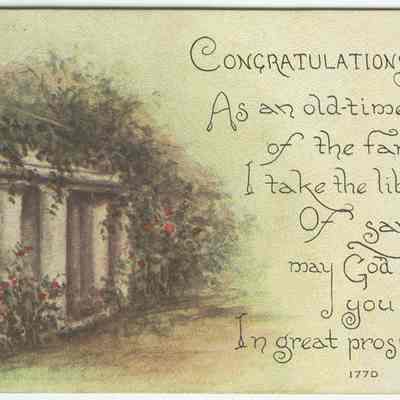 CONGRATULATIONS
As an old-time
of the fam
I take the lib
Of say
may God
you
In great prosp
177D